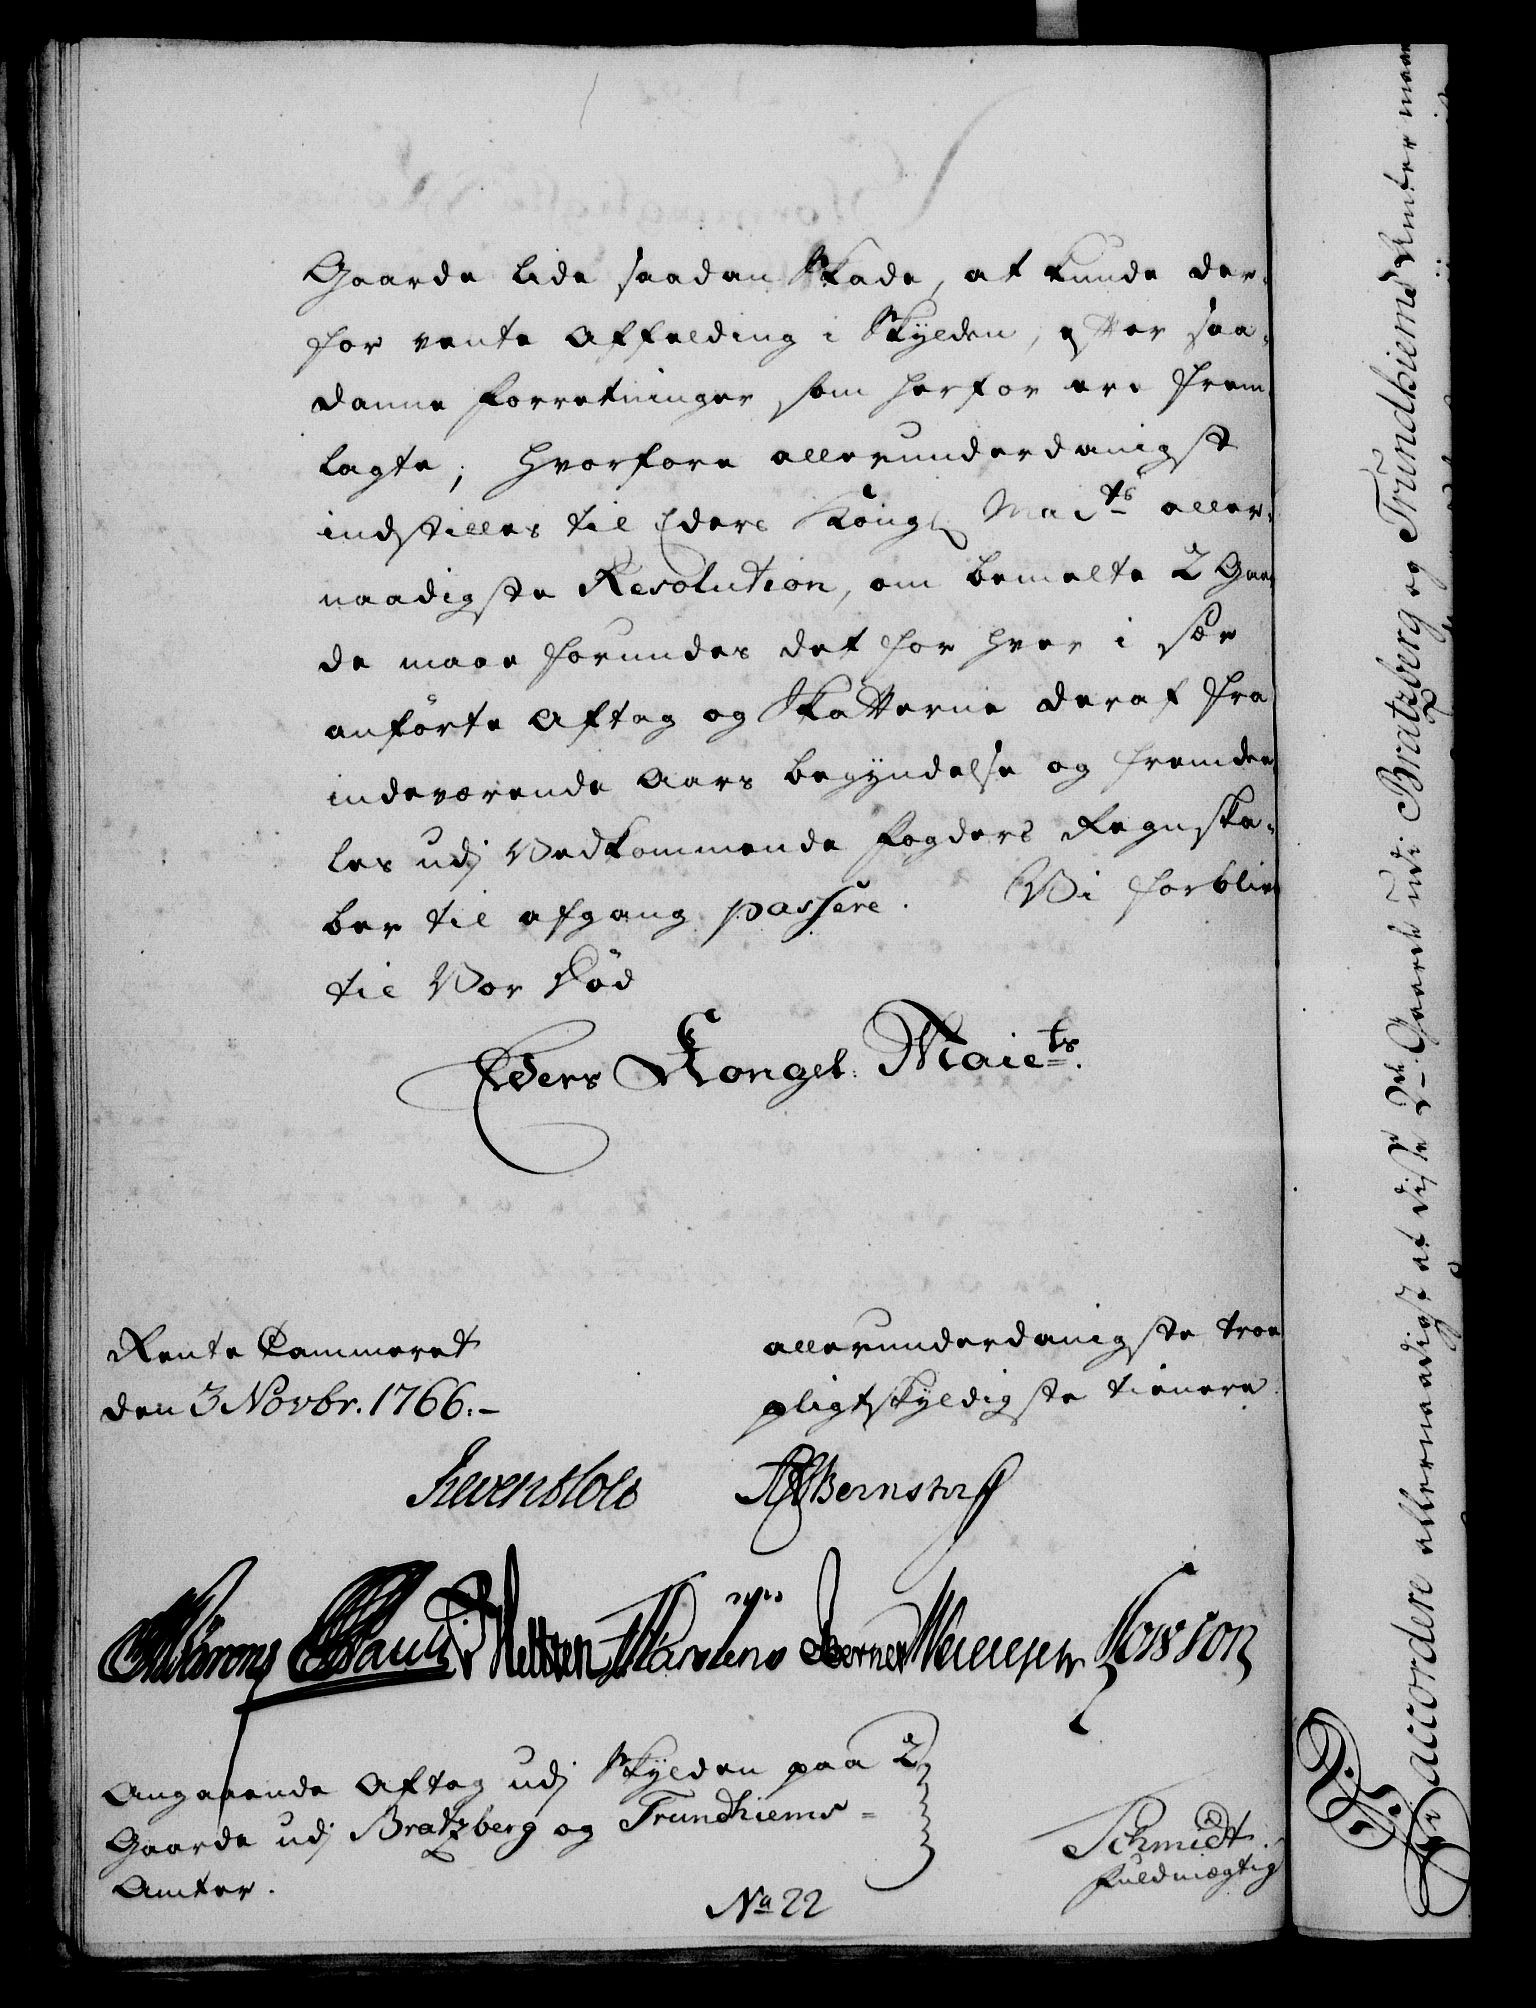 Gaarde lide saadan Skade, at kunde der-
for vente Affelding i Skylden, efter saa-
danne Forretninger som herfor ere frem-
lagte; Hvorfore allerunderdanigst
indstilles til Eders Kongl. Maits aller-
naadigste Resolution, om bemelte 2 Gaar
de maae forundes det for hver i sær
anførte Aftag og Skatterne deraf fra
indeværende Aars begyndelse og fremdee
les udj Vedkommende Fogders Regnska-
ber til afgang passere. Vi forblive
til Vor Død
Eders Kongel: Maiets.
Rente Cammeret
den 3 Novbr. 1766.-
allerunderdanigste troe
pligtskyldigste tienere.
Levenskold
Bernstorff
Pauli
Schmidt.
Fuldmægtig
Angaaende Aftag udj Skylden paa 2
Gaarde udj Bratzberg og Trundhiems-
Amter.
No 22
Vi accordere allernaadigst at disse 2de Gaarde udi Bratzberg og Trundhiems Amter maae